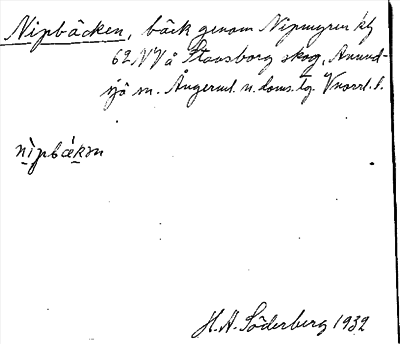 Nipbäcken, bäck genom Nipmyren kly
62 NV å Stavsborg skog, Anund-
sjö sn. Ångerml. n. doms. tg. Vnorrl. l.
nìpbækən
H. A. Söderberg 1932